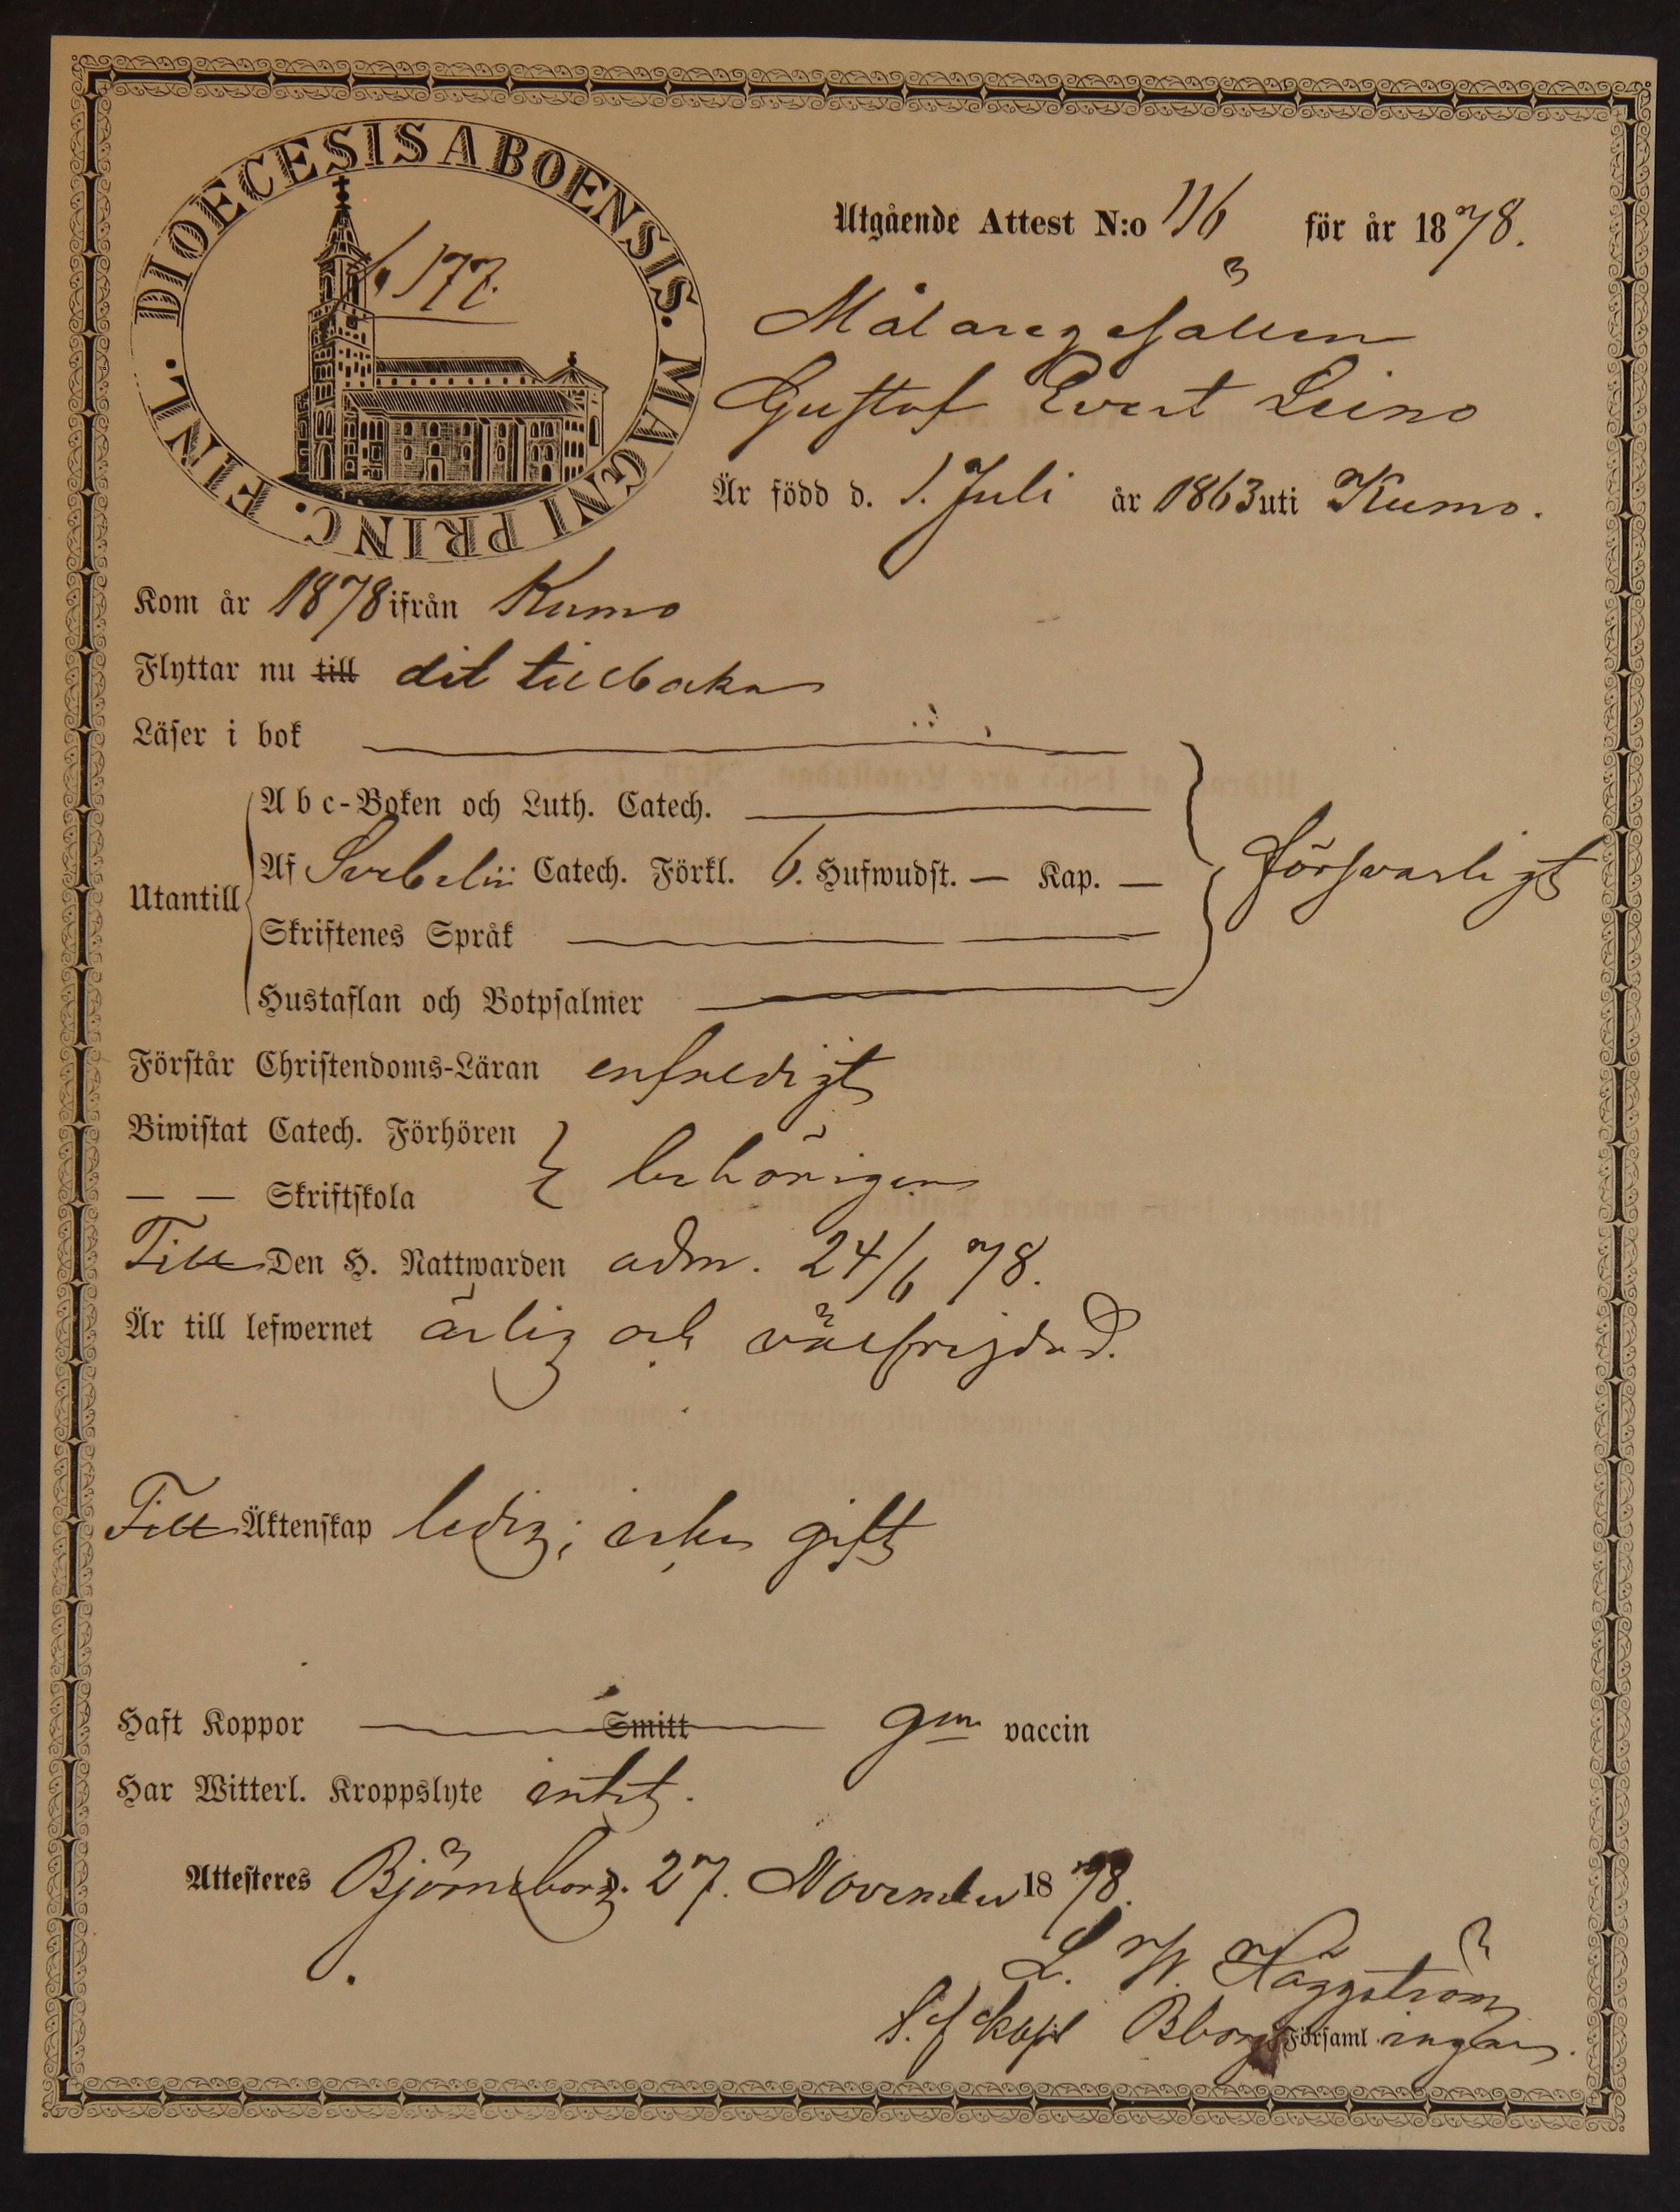 DIOECESIS ABOENSIS. MAGNI PRINC. FINL.
177.
Utgående Attest N:o 116 för år 1878.
Målaregesällen
Gustaf Evert Leino
Är född d. 1. Juli år 1863 uti Kumo.
Kom år 1878 ifrån Kumo
Flyttar nu till dit tillbaka
Läser i bok
Abc-Boken och Luth. Catech.
Utantill Af Svebelii Catech. Förkl. 6. Hufwudst. — Kap. — försvarligt
Skriftenes Språk
Hustaflan och Botpsalmer
Förstår Christendoms-Läran enfaldigt
Biwistat Catech. Förhören
— — Skriftskola behörigen
Till Den H. Nattwarden adm. 24/6 78.
Är till lefwernet ärlig och välfrejdad.
Till Äktenskap ledig; icke gift
Haft Koppor Smitt gm vaccin
Har Witterl. Kroppslyte intet.
Attesteres Björneborg. 27. November 1878.
L. W. Häggström
Kapl Bborgs Församlingar.